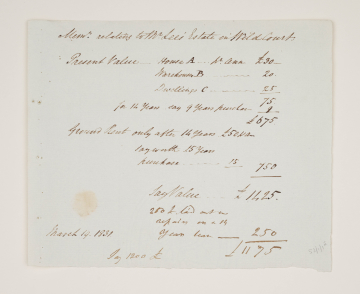 Mem.m relating to Mr. Lee's Estate in Wild Court
Present Value House A pr. ann £30 —
Warehouse B 20
Dwellings C 25
75
for 14 Years say 9 Years purchase 9
£675
Ground Rent only after 14 Years £50
say worth 15 Years
purchase 15 750
Say Value £ 1425
250£ laid out in
repairs on a
Years lease 250
£1175
March 14. 1831
Say 1200 £